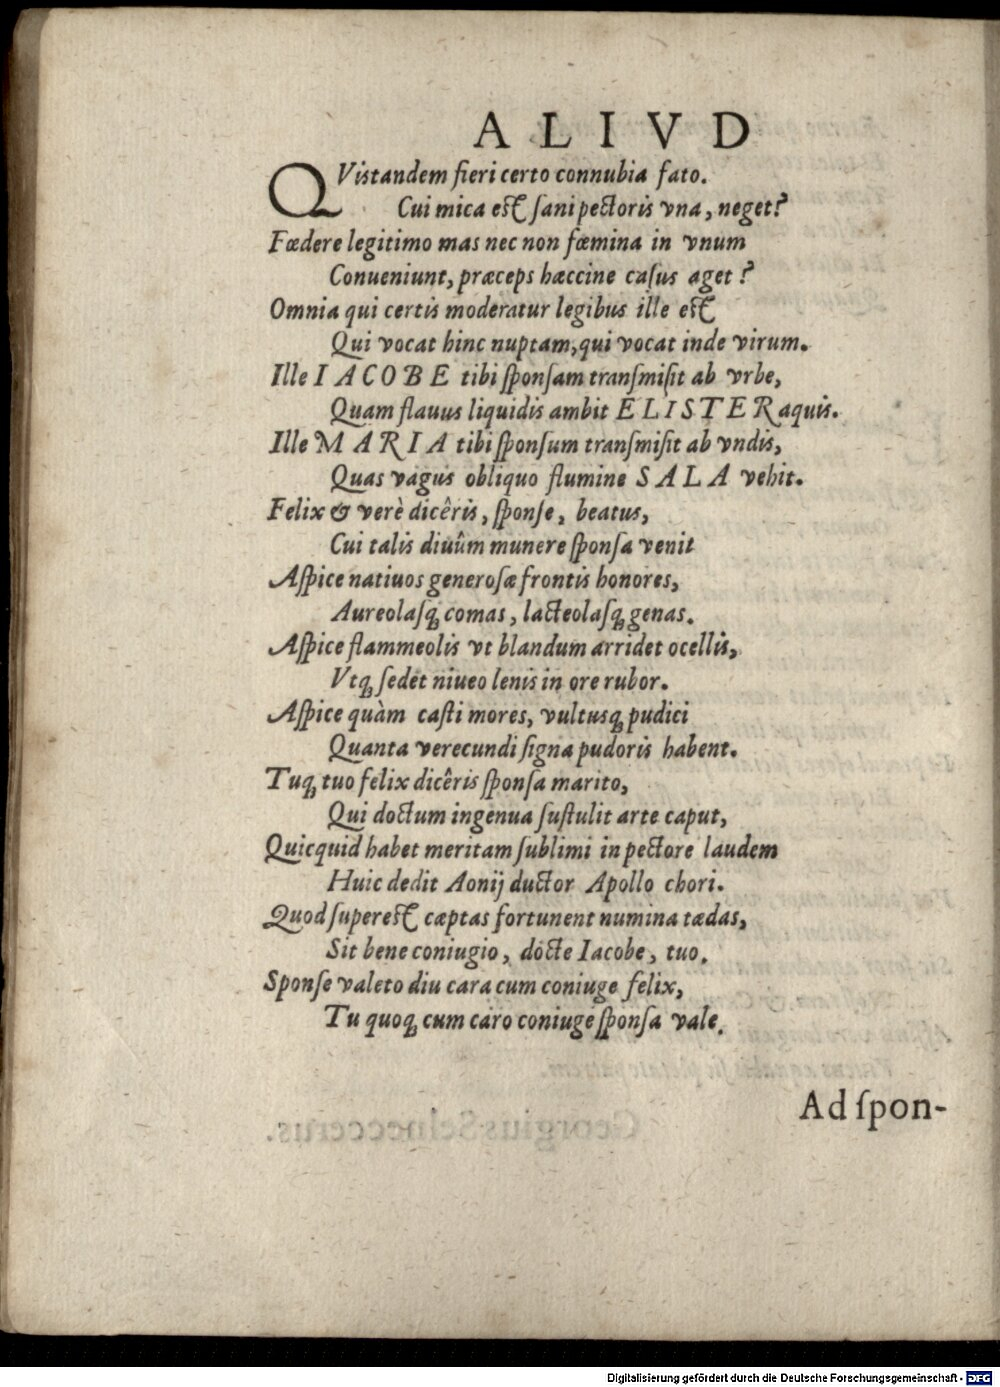 ALIVD
QVistandem fieri certo connubia fato.
Cui mica est sani pectoris vna, neget?
Fœdere legitimo mas nec non fœmina in vnum
Conueniunt, præceps hæccine casus aget?
Omnia qui certis moderatur legibus ille est
Qui vocat hinc nuptam, qui vocat inde virum.
Ille IACOBE tibi sponsam transmisit ab vrbe,
Quam flauus liquidis ambit ELISTER aquis.
Ille MARIA tibi sponsum transmisit ab vndis,
Quas vagus obliquo flumine SALA vehit.
Felix & verè dicêris, sponse, beatus,
Cui talis diuûm munere sponsa venit
Aspice natiuos generosæ frontis honores,
Aureolasq; comas, lacteolasq; genas.
Aspice flammeolis vt blandum arridet ocellis,
Vtq; sedet niueo lenis in ore rubor.
Aspice quàm casti mores, vultusq; pudici
Quanta verecundi signa pudoris habent.
Tuq; tuo felix dicêris sponsa marito,
Qui doctum ingenua sustulit arte caput,
Quicquid habet meritam sublimi in pectore laudem
Huic dedit Aonij ductor Apollo chori.
Quod superest cæptas fortunent numina tædas,
Sit bene coniugio, docte Iacobe, tuo.
Sponse valeto diu cara cum coniuge felix,
Tu quoq; cum caro coniuge sponsa vale.
Ad spon-
Digitalisierung gefördert durch die Deutsche Forschungsgemeinschaft - DFG